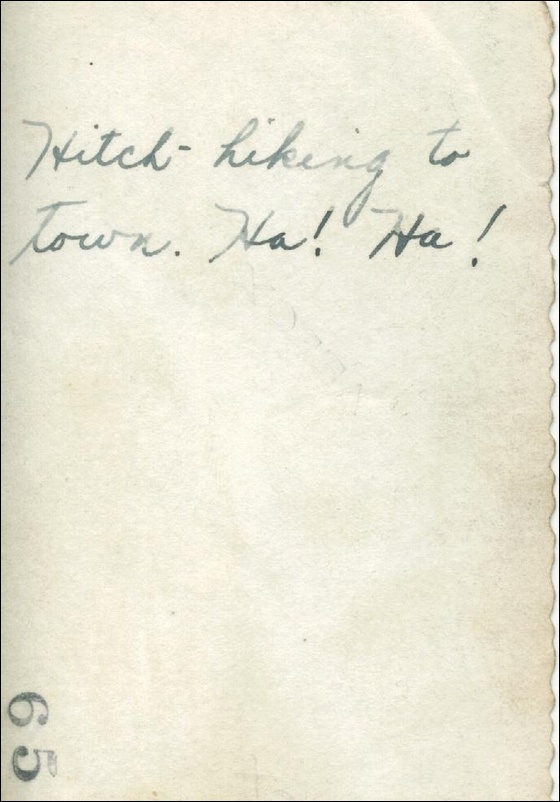 Hitch-hiking to
town. Ha! Ha!
65